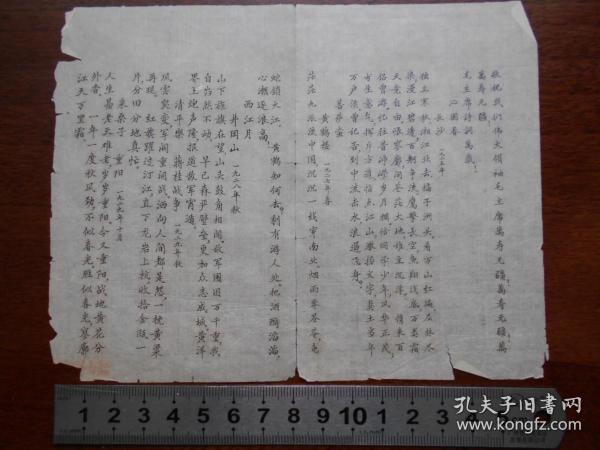 敬祝我们伟大领袖毛主席萬寿无疆萬寿无疆萬
萬寿无疆
毛主席詩詞萬歲
沁園春
長沙 一九二五年
独立寒秋湘江北去橘子洲头看万山红遍层林尽
染漫江碧透百舸争流鹰擊长空魚翔浅底万类霜
天竟自由怅寥廓问苍茫大地谁主沉浮 携来百
侣曾游忆往昔崢嵘岁月稠恰同学少年风华正茂
书生意气挥斥方遒指点江山激扬文字粪土当年
万户侯曾记否到中流击水浪遏飞舟
菩萨蛮
黄鶴楼 一九二七年春
茫茫九派流中国沉沉一线穿南北烟雨莽苍苍龟
蛇锁大江 黄鶴知何去剩有游人处把酒酹滔滔
心潮逐浪高
西江月
井冈山 一九二八年秋
山下旌旗在望山头鼓角相闻敌军围困万千重我
自岿然不动 早已森严壁垒更加众志成城黄洋
界上炮声隆报道敌军宵遁
清平樂 蒋桂战争 一九二九年秋
风雲突变军阀重開战洒向人间都是怨一枕黄粱
再現 红旗躍过汀江直下龙岩上杭收拾金瓯一
片分田分地真忙
采桑子 重阳 一九二九年十月
人生易老天难老岁岁重阳今又重阳战地黄花分
外香 一年一度秋风劲不似春光胜似春光寥廓
江天万里霜
1 2 3 4 5 6 7 8 9 10 1 2 3 4
孔夫子旧書网
www.kongfz.com